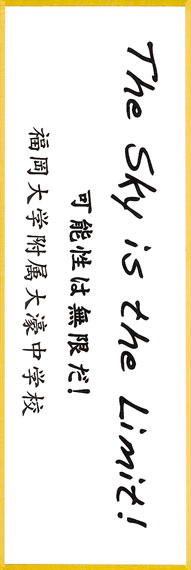 The Sky is the Limit!
可能性は無限だ!
福岡大学附属大濠中学校